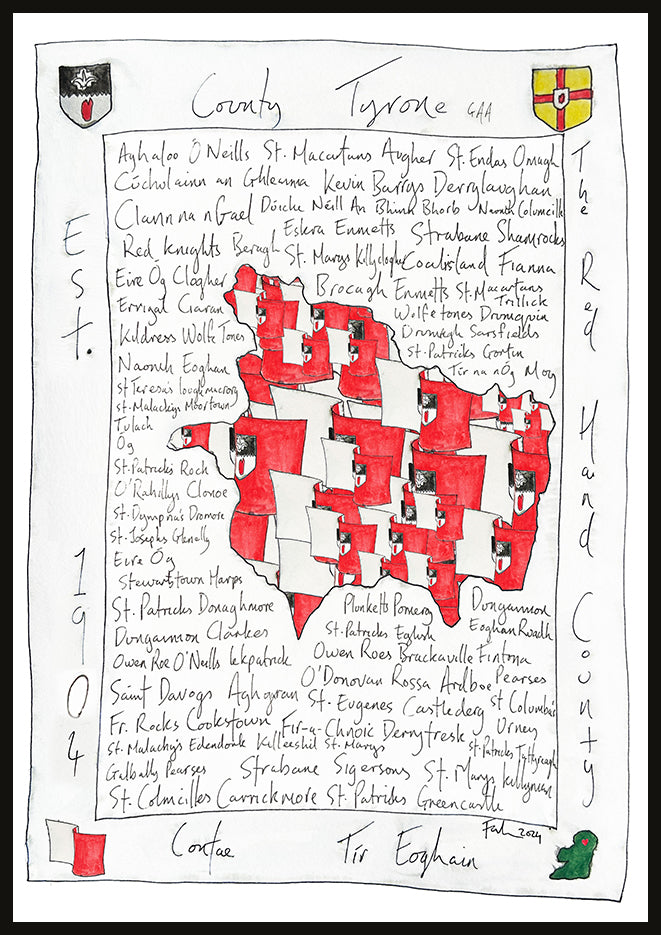 County Tyrone GAA
Aghaloo O Neills St. Macartans Augher St. Endas Omagh
Cúchulainn an Ghleanna Kevin Barrys Derrylaughan
Clann na nGael Dúiche Néill An Bhinn Bhorb Naomh Columcille
Eskra Emmetts Strabane Shamrocks
Red Knights Beragh St. Marys Killyclogher Coalisland Fianna
Eire Óg Clogher Brocagh Emmetts St. Macartans
Trillick
Errigal Ciaran Wolfetones Drumquin
Kildress Wolfe Tones Drumragh Sarsfields
St. Patricks Gortin
Naomh Eoghan Tír na nÓg Moy
St Teresa's Loughmacrory
St. Malachys Moortown
Tulach
Óg
St. Patricks Rock
O'Rahillys Clonoe
St. Dymphna's Dromore
St. Josephs Glenelly
Eire Óg
Stewartstown Harps
St. Patricks Donaghmore Plunketts Pomeroy Dungannon
Dungannon Clarkes St. Patricks Eglish Eoghan Ruadh
Owen Roe O'Neills Leckpatrick Owen Roes Brackaville Fintona
Pearses
O'Donovan Rossa Ardboe
Saint Davogs Aghyaran St. Eugenes Castlederg St Columba's
Urney
Fr. Rocks Cookstown Fir-a-Chnoic Derrytresk
St. Malachy's Edendork Killeeshil St. Marys St. Patricks Tattyreagh
Galbally Pearses Strabane Sigersons St. Marys Killyman
St. Colmcilles Carrickmore St. Patricks Greencastle
2024
Est. 1904
The Red Hand County
Contae Tír Eoghain